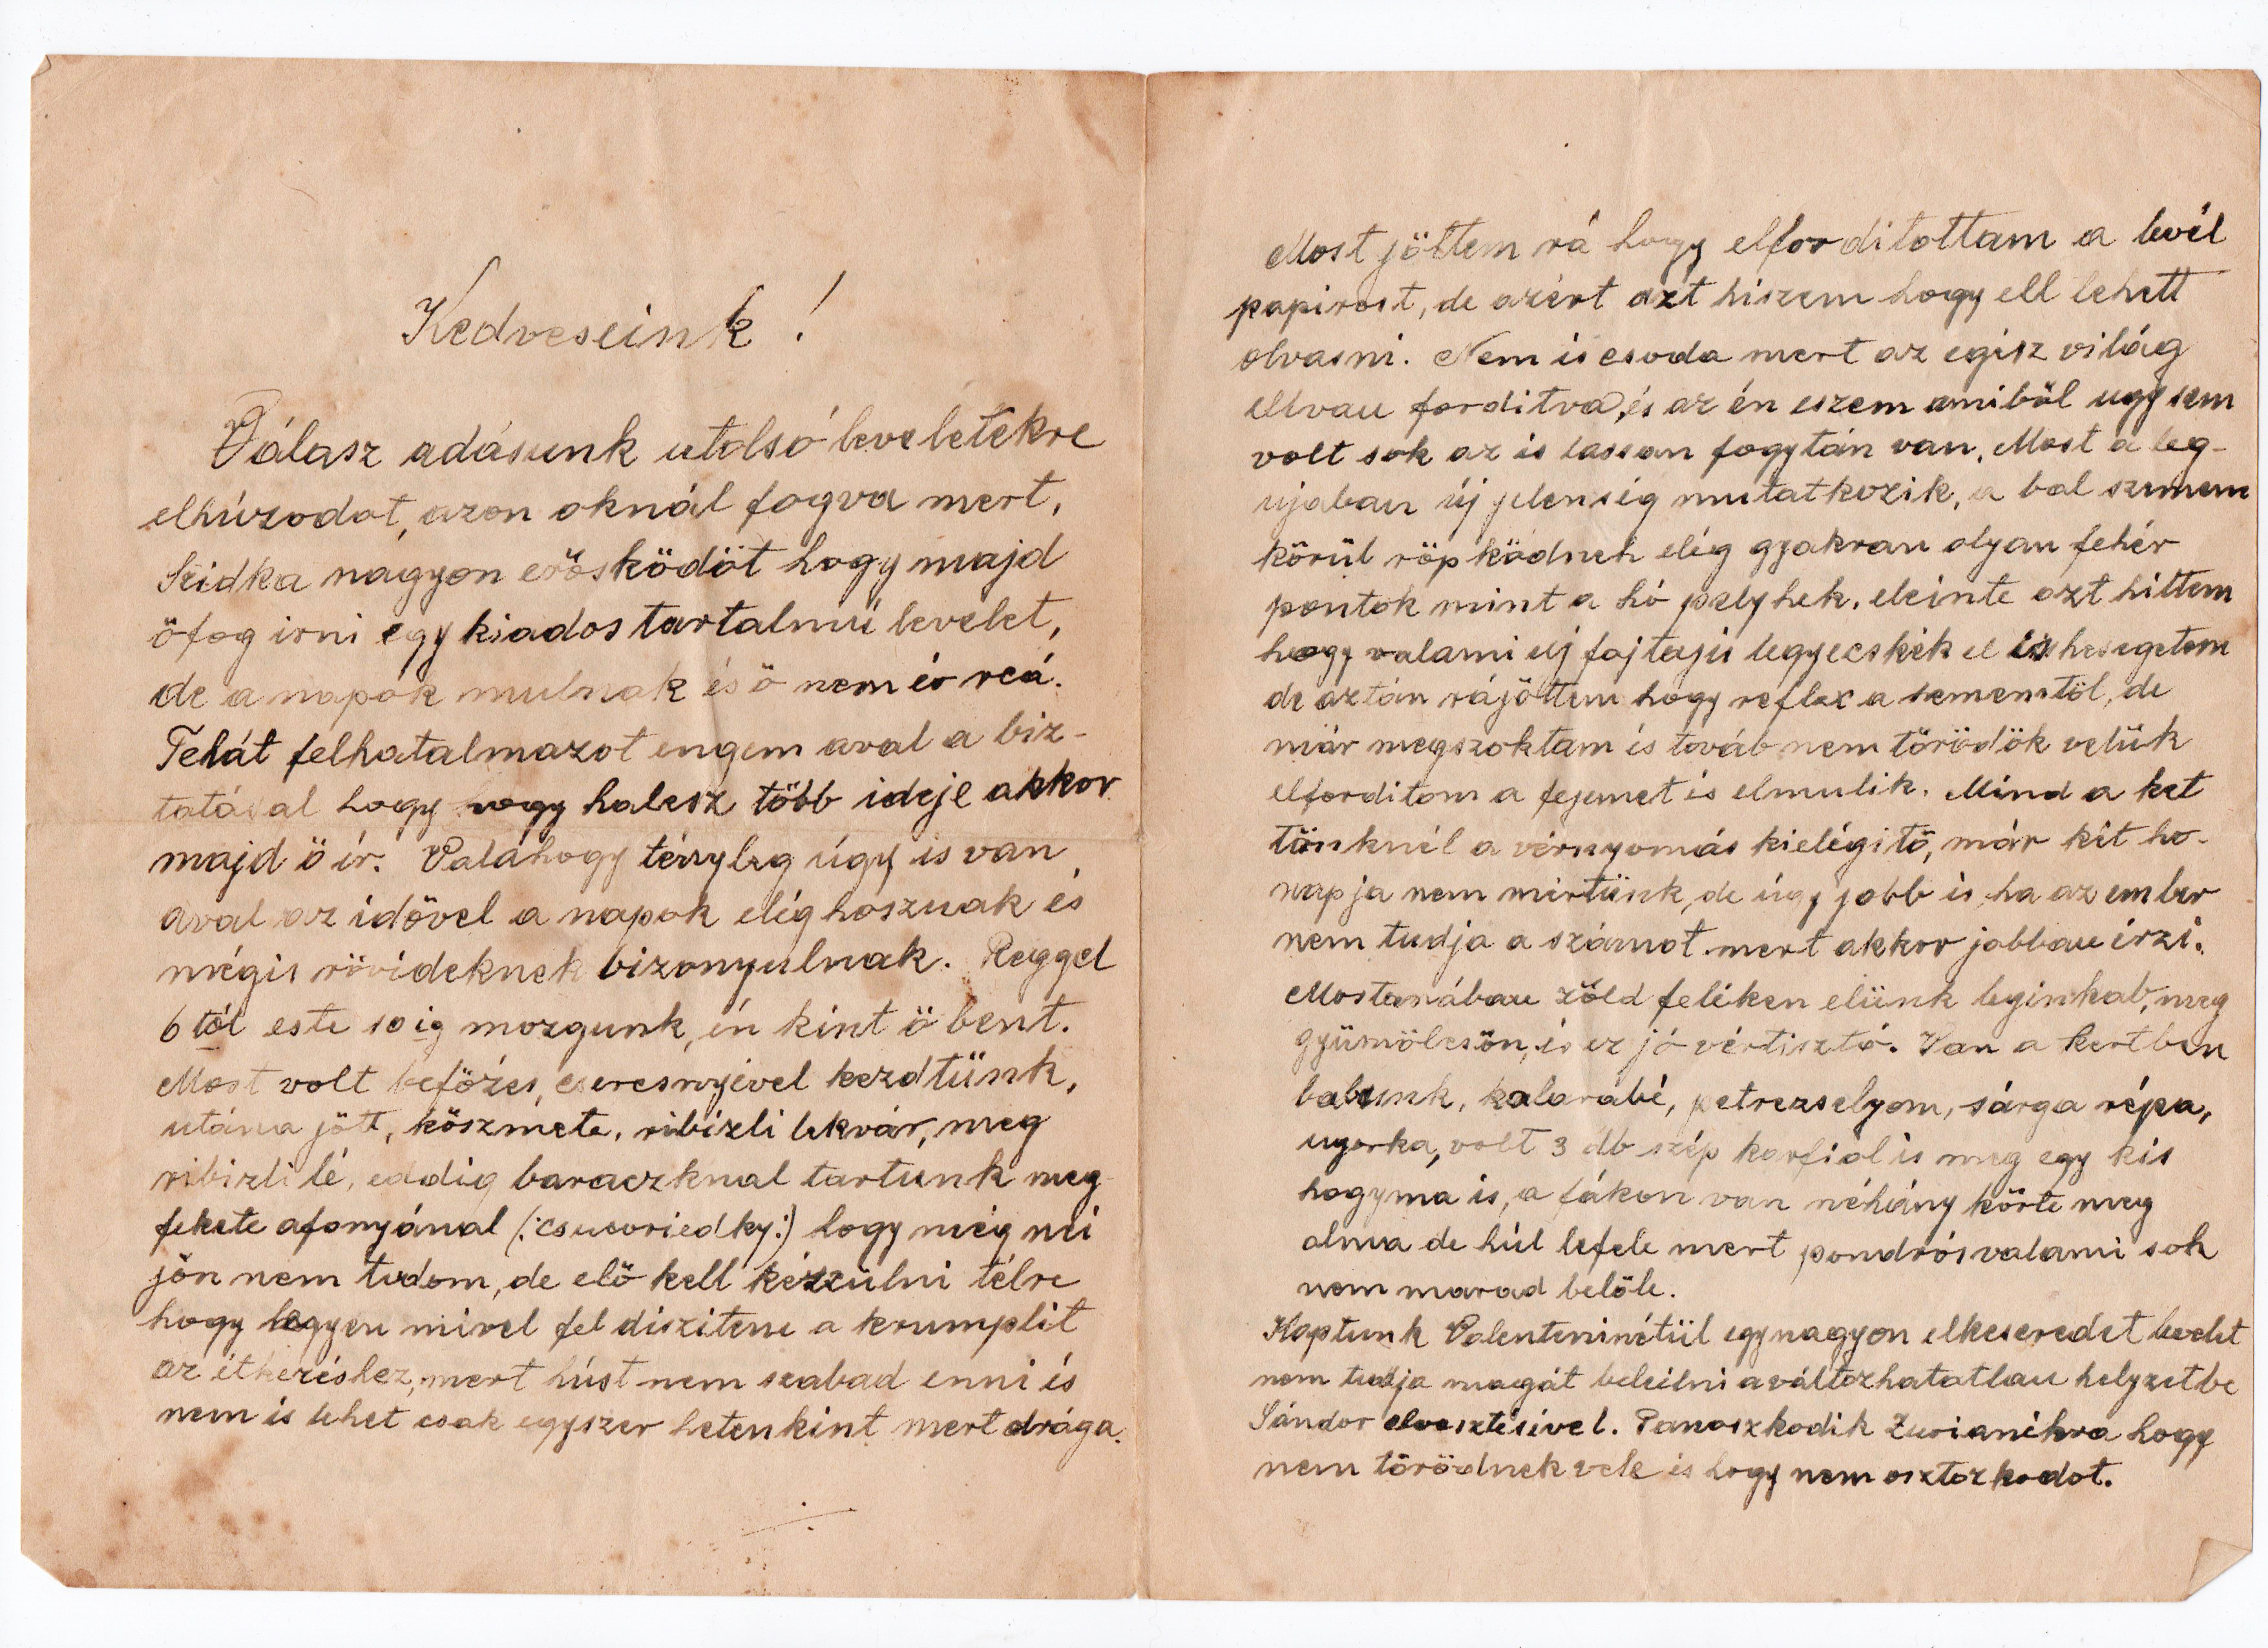 Kedveseink !
Válasz adásunk utolsó leveletekre
elhúzodot, azon oknál fogva mert,
Szidka nagyon erösködöt hogy majd
öfog irni egy kiados tartalmú levelet,
de a napok mulnak és ö nem ér reá.
Tehát felhatalmazot engem aval a biz-
tatásal hogy hogy halesz több ideje akkor
majd ö ír. Valahogy tényleg úgy is van
aval az idövel a napok elég hoszuak és
mégis rövideknek bizonyulnak. Reggel
6 tól este 10 ig mozgunk, én kint ö bent.
Most volt befözes, cseresnyével kezdtünk,
utána jött, köszméte, ribizli lekvár, meg
ribizli lé, eddig baraczknal tartunk meg
fekete afonyánal (:csucoriedky:) hogy még mi
jön nem tudom, de elö kell készülni télre
hogy legyen mivel fel disziteni a krumplit
az étkezéshez, mert húst nem szabad enni és
nem is lehet csak egyszer hetenkint mert drága.
Most jöttem rá hogy elforditottam a levél
papirost, de azért azt hiszem hogy ell lehett
olvasni. Nem is csoda mert az egész világ
ellvan forditva, és az én eszem amiböl ugy sem
volt sok az is lassan fogytán van. Most a leg-
ujaban új jelenség mutatkozik, a bal szemem
körül röpködnek elég gyakran olyan fehér
pontok mint a hó pelyhek. eleinte azt hittem
hogy valami uj fajtaju legyecskék el is hesegetem
de aztán rájöttem hogy reflex a szememtöl, de
már megszoktam és továb nem törödök velük
elforditom a fejemet és elmulik. Mind a ket
tönknél a vérnyomás kielégitö, már két ho-
napja nem mértünk, de úgy jobb is, ha az ember
nem tudja a számot mert akkor jobban érzi.
Mostanában zöld feléken elünk leginkab, meg
gyümölcsön, és ez jó vértisztó. Van a kertben
babunk, kalarábé, petrezselyom, sárga répa,
ugorka, volt 3 db szép karfiol is meg egy kis
hogyma is, a fákon van néhány körte meg
alma de húl lefele mert pondrós valami sok
nem marad belöle.
Kaptunk Valenteninétül egy nagyon elkeseredet levelet
nem tudja magát beleilni a változhatatlan helyzetbe
Sándor elvesztésével. Panaszkodik Zurianékra hogy
nem törödnek vele és hogy nem osztozkodot.